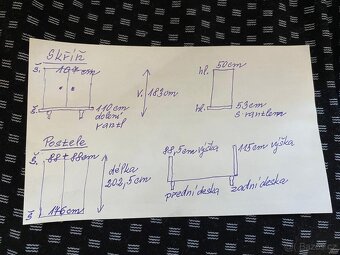 Skříň
š. 107cm
v. 183cm
š. 110cm
dolení
rantl
50cm
hl.
hl. 53cm
s rantlem
Postele
š. 88+88cm
délka
202,5cm
š. 176cm
88,5cm výška
115cm výška
přední deska
zadní deska